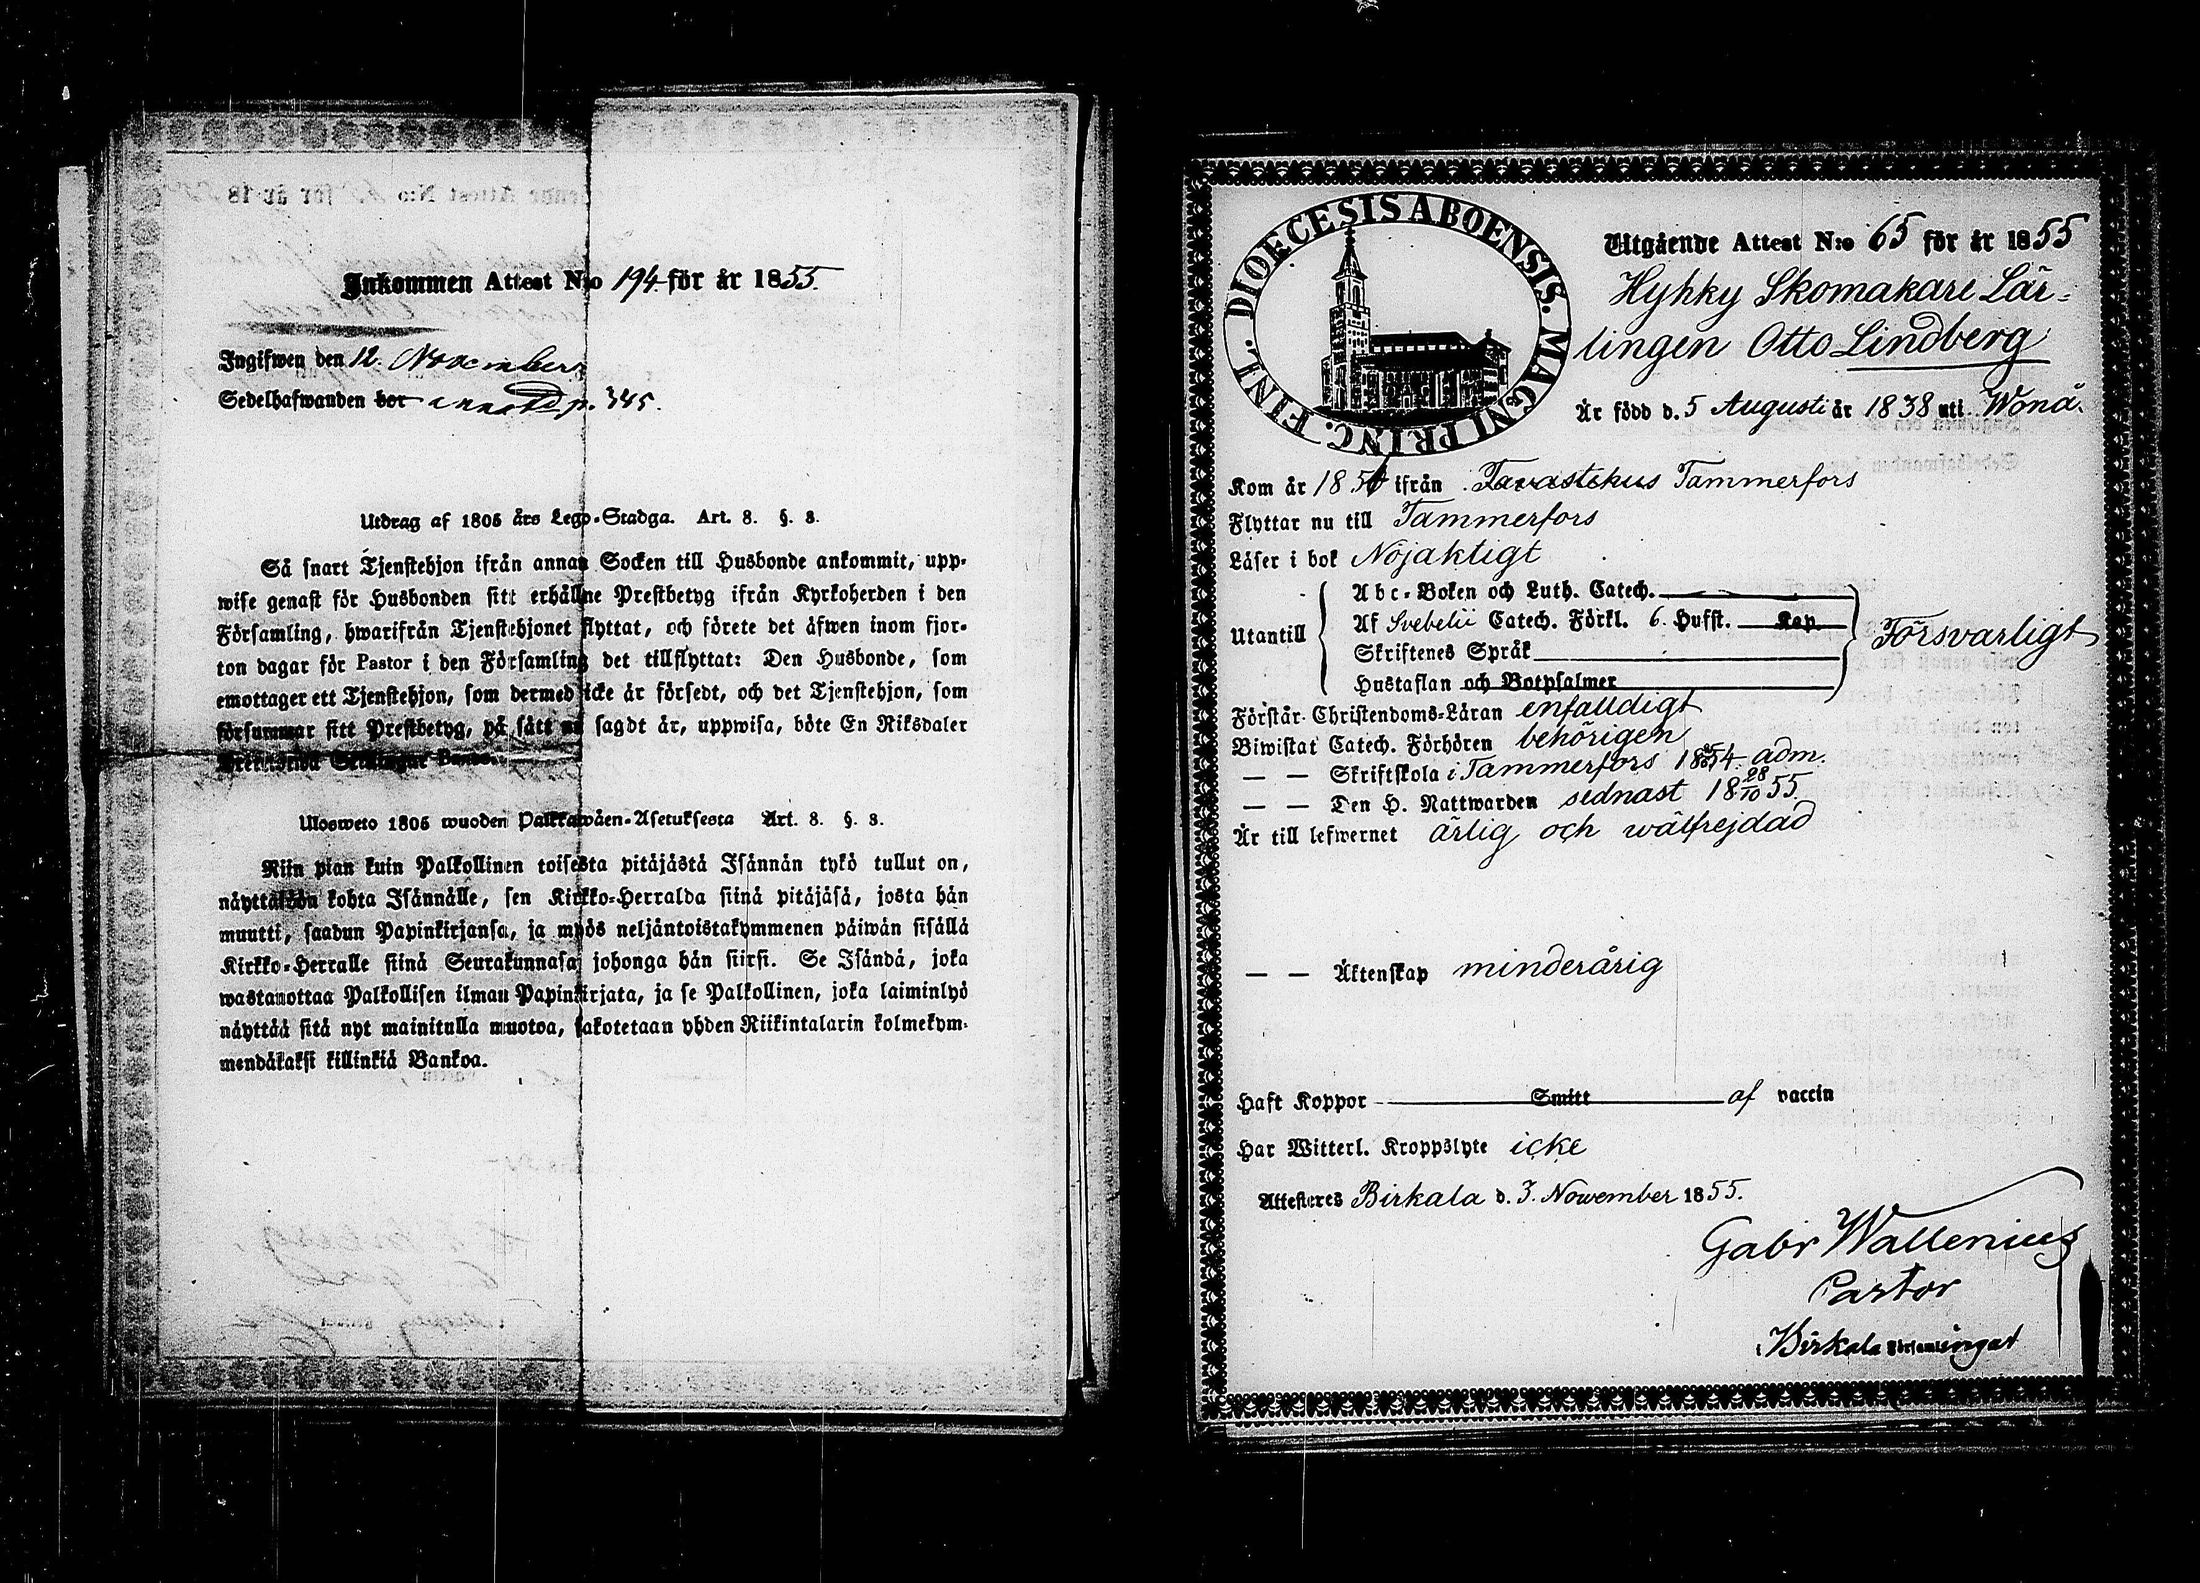 Inkommen Attest N:o 194 för år 1855.
Ingifwen den 12 November
Sedelhafwanden bor p. 345.
Utdrag af 1805 års Lego-Stadga. Art. 8. §. 8.
Så snart Tjenstehjon ifrån annan Socken till Husbonde ankommit, upp-
wise genast för Husbonden sitt erhållne Prestbetyg ifrån Kyrkoherden i den
Församling, hwarifrån Tjenstehjonet flyttat, och förete det äfwen inom fjor-
ton dagar för Pastor i den Församling det tillflyttat: Den Husbonde, som
emottager ett Tjenstehjon, som dermed icke är försedt, och det Tjenstehjon, som
försummar sitt Prestbetyg, på sätt nu sagdt är, uppwisa, böte En Riksdaler
Banco.
Ulosweto 1805 wuoden Palkkawäen-Asetuksesta Art. 8. §. 8.
Niin pian kuin Palkollinen toisesta pitäjästä Isännän tykö tullut on,
näyttäköön kohta Isännälle, sen Kirkko-Herralda siinä pitäjäsä, josta hän
muutti, saadun Papinkirjansa, ja myös neljäntoistakymmenen päiwän sisällä
Kirkko-Herralle siinä Seurakunnasa johonga hän siirsi. Se Isändä, joka
wastanottaa Palkollisen ilman Papinkirjata, ja se Palkollinen, joka laiminlyö
näyttää sitä nyt mainitulla muotoa, sakotetaan yhden Riikintalarin kolmekym-
mendäkaksi killinkiä Bankoa.
DIOECESIS ABOENSIS. MAGNI PRINC. FINL.
Utgående Attest N:o 65 för år 1855
Hyhky Skomakare Lär-
lingen Otto Lindberg
Är född d. 5 Augusti år 1838 uti Wånå.
Kom år 1854 ifrån Tavastehus Tammerfors
Flyttar nu till Tammerfors
Läser i bok Nöjaktigt
Utantill
Abc-Boken och Luth. Catech.
Af Svebelii Catech. Förkl. 6. Hufst. Kap.
Skriftenes Språk
Hustaflan och Botpsalmer
Försvarligt
Förstår Christendoms-Läran enfaldigt
Biwistat Catech. Förhören behörigen
— — Skriftskola i Tammerfors 1854. adm.
— — Den H. Nattwarden sednast 18 28/10 55.
Är till lefwernet ärlig och wälfrejdad
— — Äktenskap minderårig
Haft Koppor Smitt af vaccin
Har Witterl. Kroppslyte icke
Attesteres Birkala d. 3. November 1855.
Gabr Wallenius
Pastor
i Birkala Församlingat